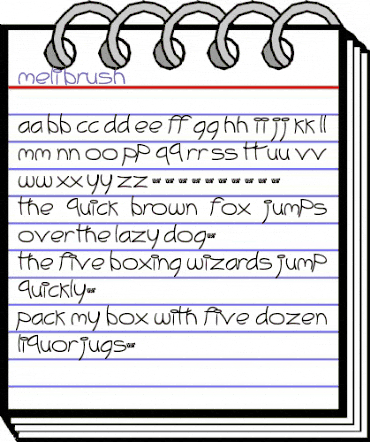 meli brush
aa bb cc dd ee ff gg hh ii jj kk ll
mm nn oo pp qq rr ss tt uu vv
ww xx yy zz
the quick brown fox jumps
over the lazy dog
the five boxing wizards jump
quickly
pack my box with five dozen
liquor jugs